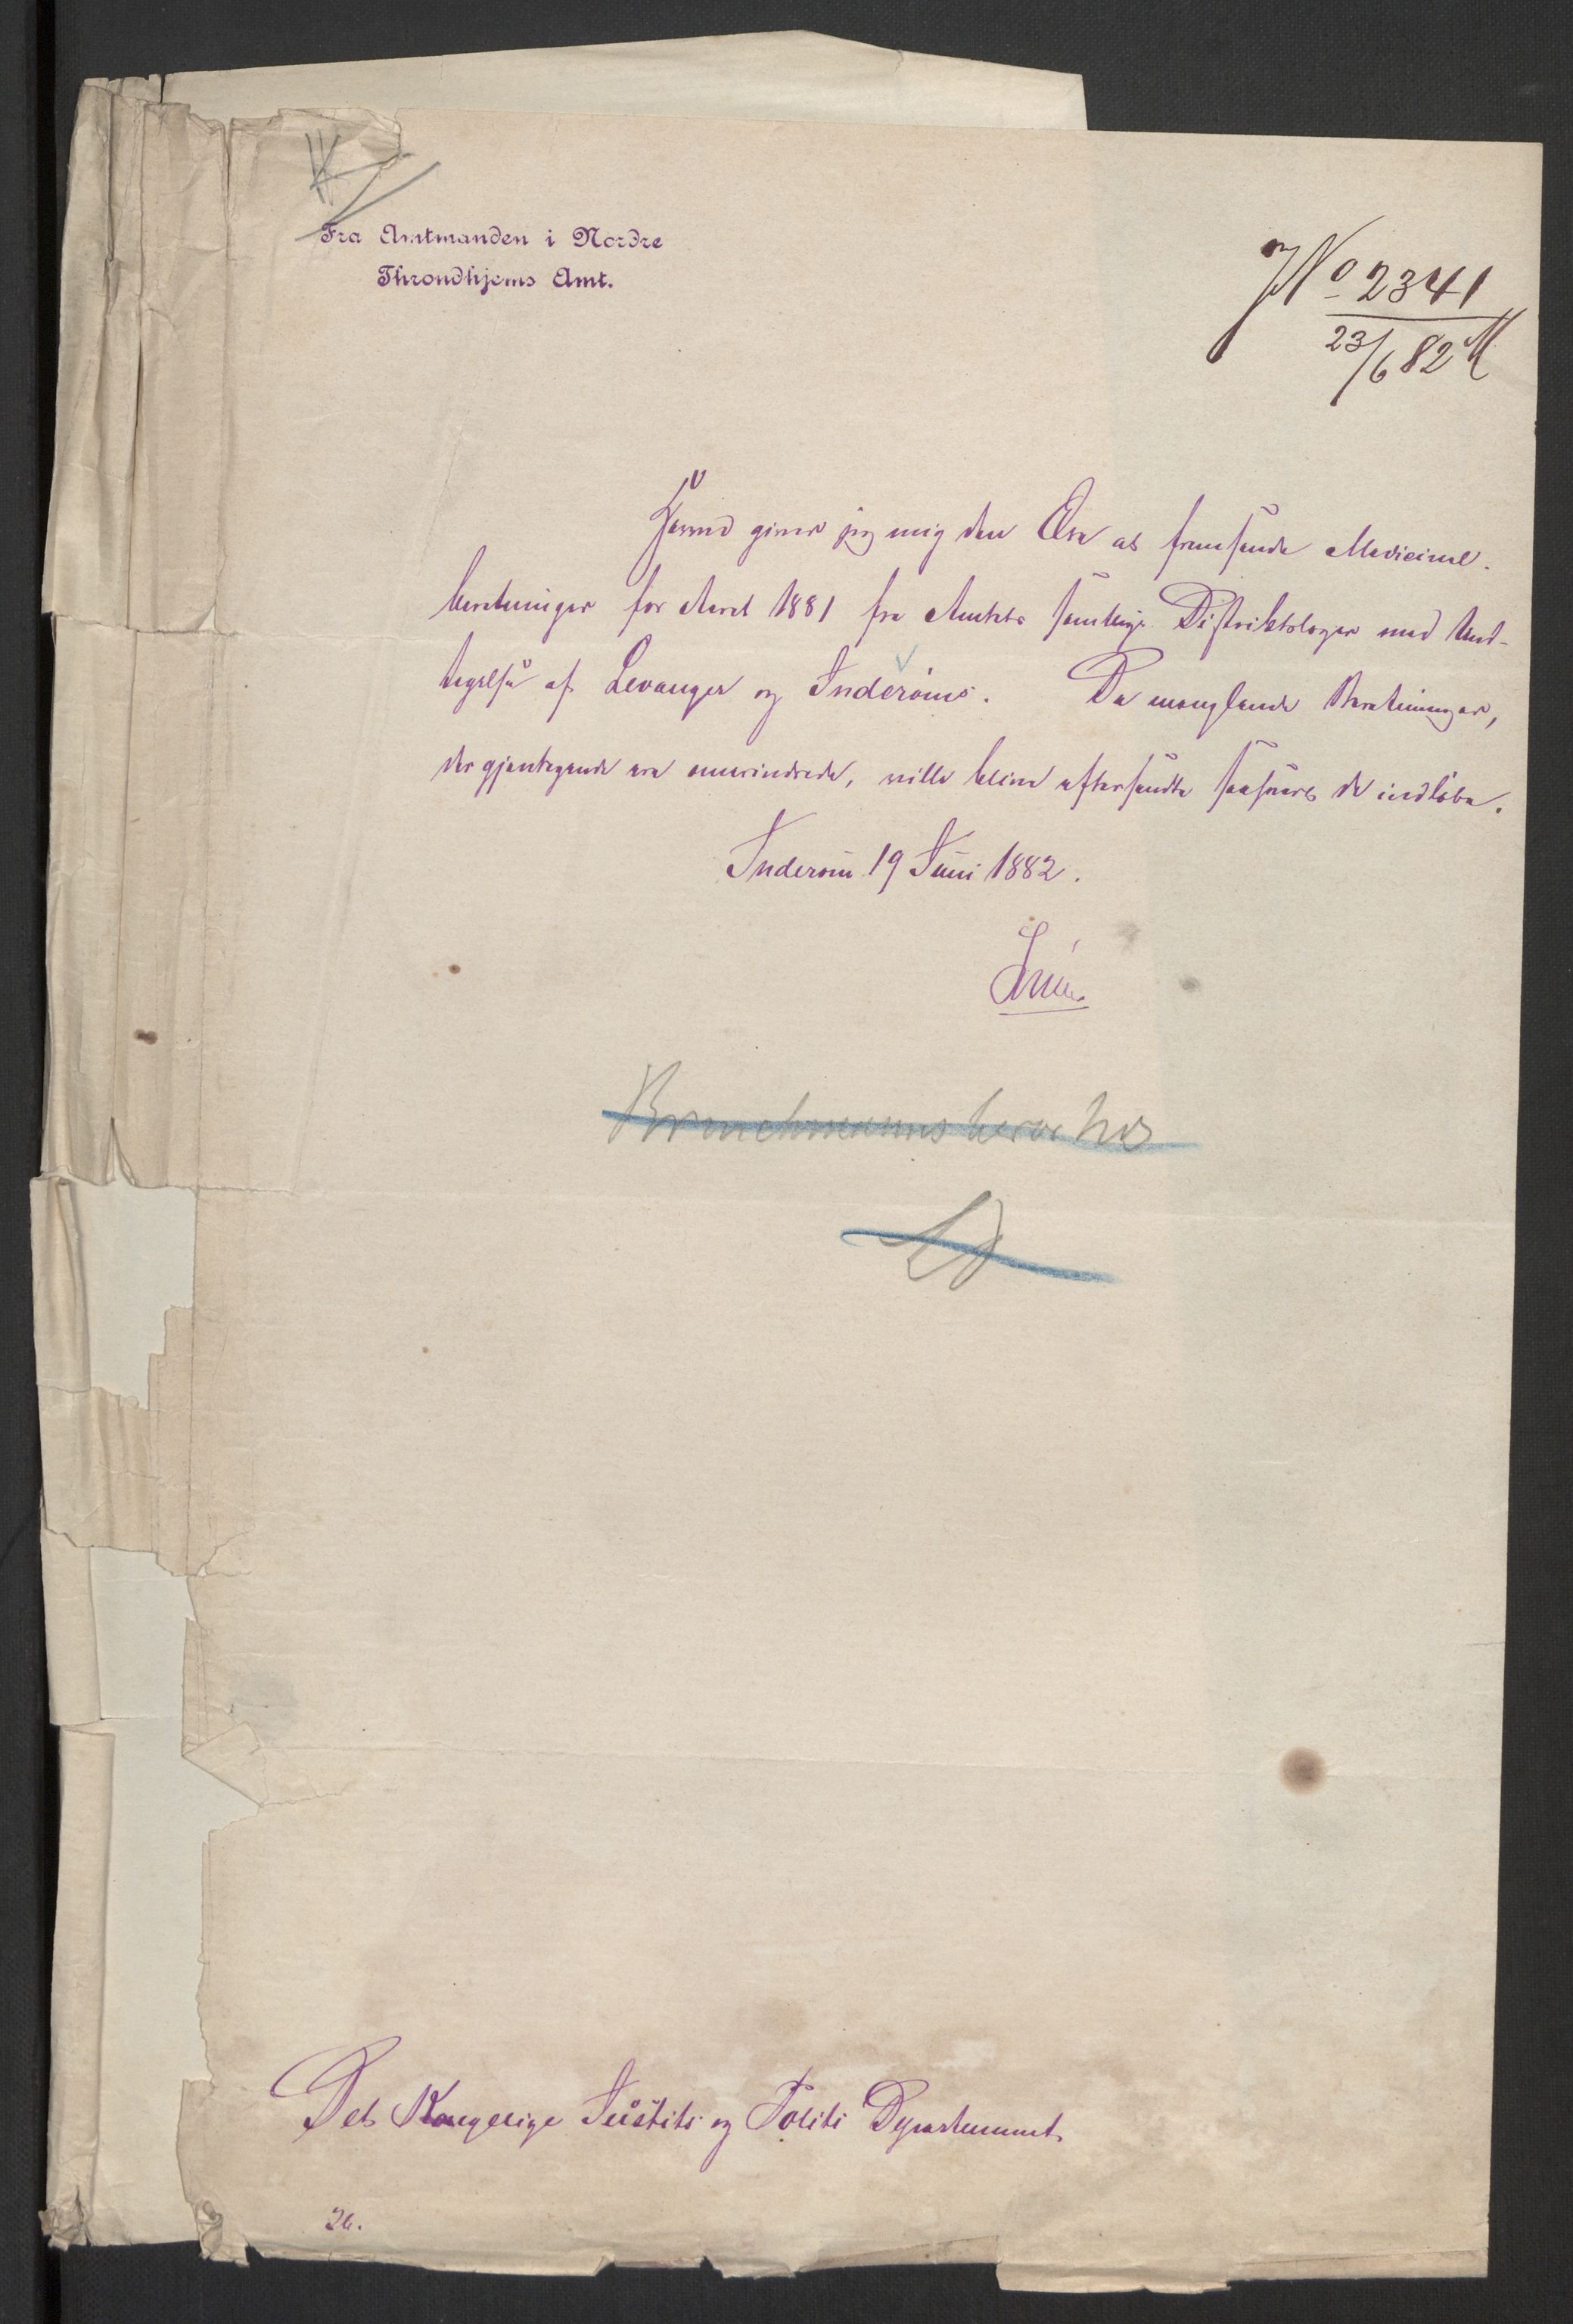 Fra Amtmanden i Nordre
Throndhjems Amt.
JNo 2341
23/6 82 M
Herved giver jeg mig den Ære at fremsende Medicinal-
beretninger for Aaret 1881 fra Amtets samtlige Distriktslæger med Und-
tagelse af Levanger og Inderøens. De manglende Beretninger,
der gjentagende ere omerindrede, ville blive eftersendte saasnart de indløbe.
Inderøen 19 Juni 1882.
Det Kongelige Justits og Politi Departement.